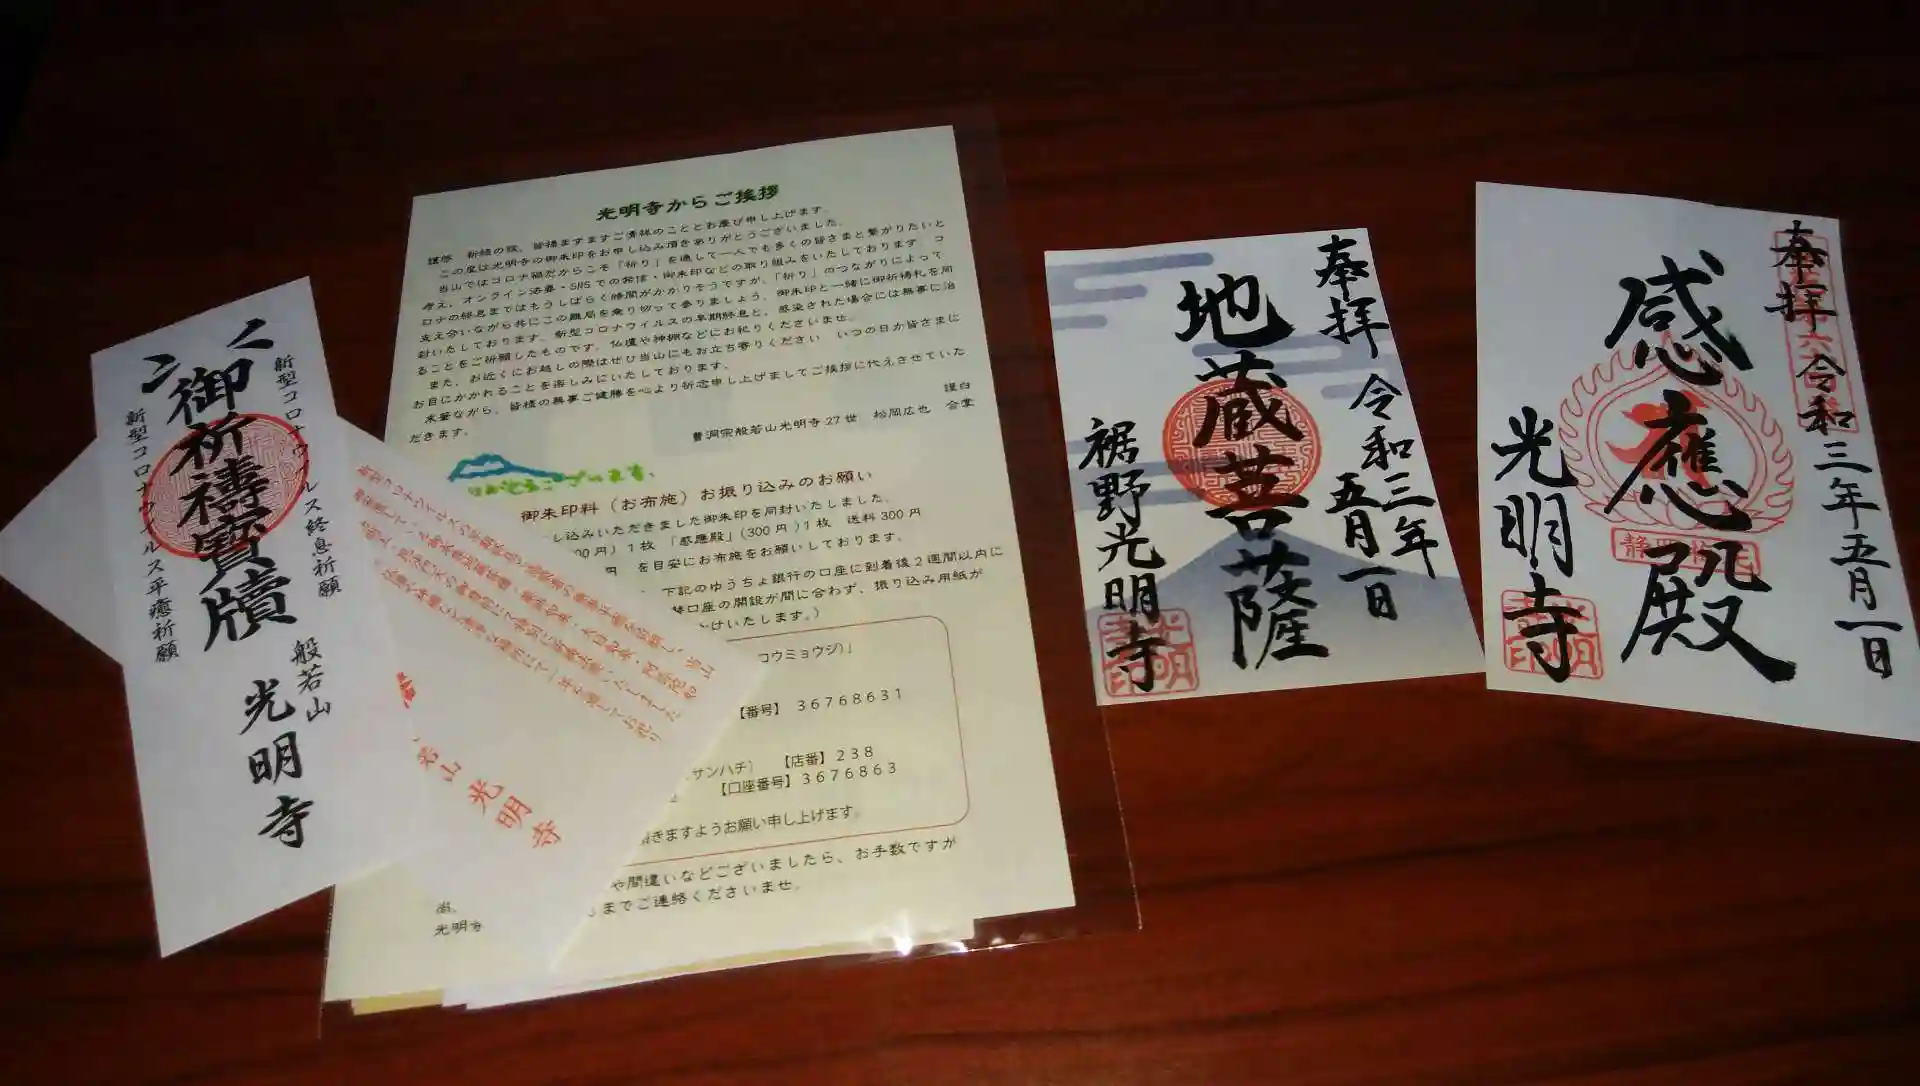 新型コロナウイルス終息祈願
御祈禱寳牘
新型コロナウイルス平癒祈願
般若山
光明寺
光明寺からご挨拶
謹啓 新緑の候、皆様ますますご清祥のこととお慶び申し上げます。
この度は光明寺の御朱印をお申し込み頂きありがとうございました。
当山ではコロナ禍だからこそ「祈り」を通して一人でも多くの皆さまと繋がりたいと
考え、オンライン法要・SNSでの発信・御朱印などの取り組みをいたしております。コ
ロナの終息まではもうしばらく時間がかかりそうですが、「祈り」のつながりによって
支え合いながら共にこの難局を乗り切って参りましょう。御朱印と一緒に御祈祷札を同
封いたしております。新型コロナウイルスの早期終息と、感染された場合には無事に治
ることをご祈願したものです。仏壇や神棚などにお祀りくださいませ。
また、お近くにお越しの際はぜひ当山にもお立ち寄りください いつの日か皆さまに
お目にかかれることを楽しみにいたしております。
末筆ながら、皆様の無事ご健勝を心より祈念申し上げましてご挨拶に代えさせていた
だきます。
謹白
曹洞宗般若山光明寺27世 松岡広也 合掌
ありがとうございます。
御朱印料（お布施）お振り込みのお願い
し込みいただきました御朱印を同封いたしました。
00円）1枚 「感應殿」（300円）1枚 送料300円
円 を目安にお布施をお願いしております。
下記のゆうちょ銀行の口座に到着後2週間以内に
替口座の開設が間に合わず、振り込み用紙が
かけいたします。）
コウミョウジ）」
【番号】 36768631
サンハチ） 【店番】238
【口座番号】3676863
頂きますようお願い申し上げます。
や間違いなどございましたら、お手数ですが
尚、
までご連絡くださいませ。
光明寺
若山 光明寺
奉拝 令和三年五月一日
地蔵菩薩
裾野光明寺
奉拝 令和三年五月一日
感應殿
光明寺